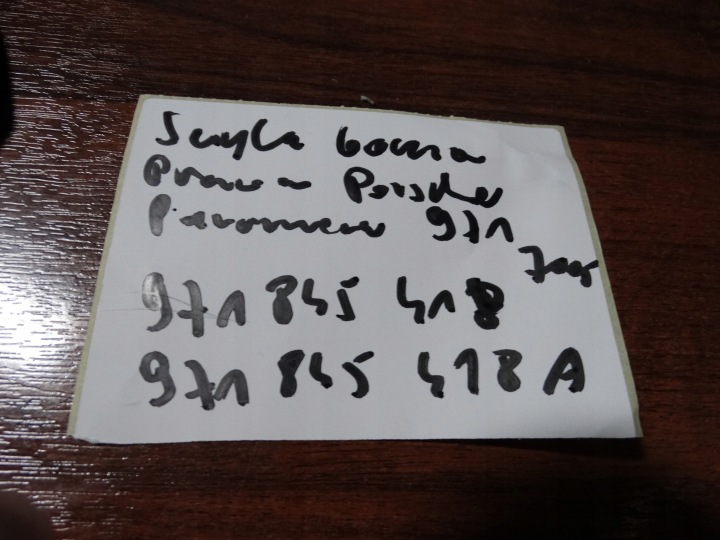 Szyba boczna
Prawa Porsche
Panamera 971
971 845 418
971 845 418 A